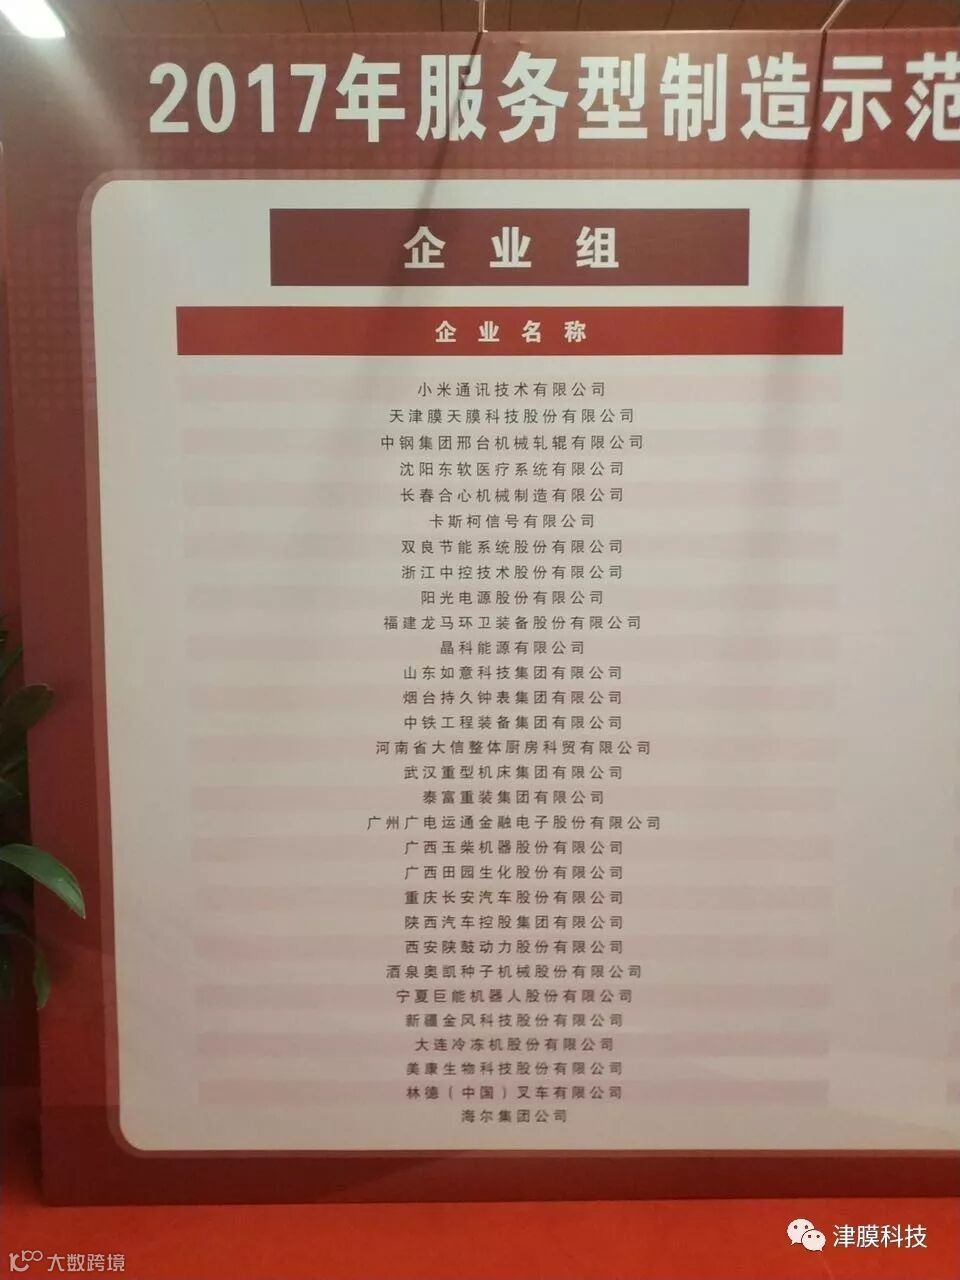 2017年服务型制造示范
企业组
企业名称
小米通讯技术有限公司
天津膜天膜科技股份有限公司
中钢集团邢台机械轧辊有限公司
沈阳东软医疗系统有限公司
长春合心机械制造有限公司
卡斯柯信号有限公司
双良节能系统股份有限公司
浙江中控技术股份有限公司
阳光电源股份有限公司
福建龙马环卫装备股份有限公司
晶科能源有限公司
山东如意科技集团有限公司
烟台持久钟表集团有限公司
中铁工程装备集团有限公司
河南省大信整体厨房科贸有限公司
武汉重型机床集团有限公司
泰富重装集团有限公司
广州广电运通金融电子股份有限公司
广西玉柴机器股份有限公司
广西田园生化股份有限公司
重庆长安汽车股份有限公司
陕西汽车控股集团有限公司
西安陕鼓动力股份有限公司
酒泉奥凯种子机械股份有限公司
宁夏巨能机器人股份有限公司
新疆金风科技股份有限公司
大连冷冻机股份有限公司
美康生物科技股份有限公司
林德（中国）叉车有限公司
海尔集团公司
津膜科技
大数跨境